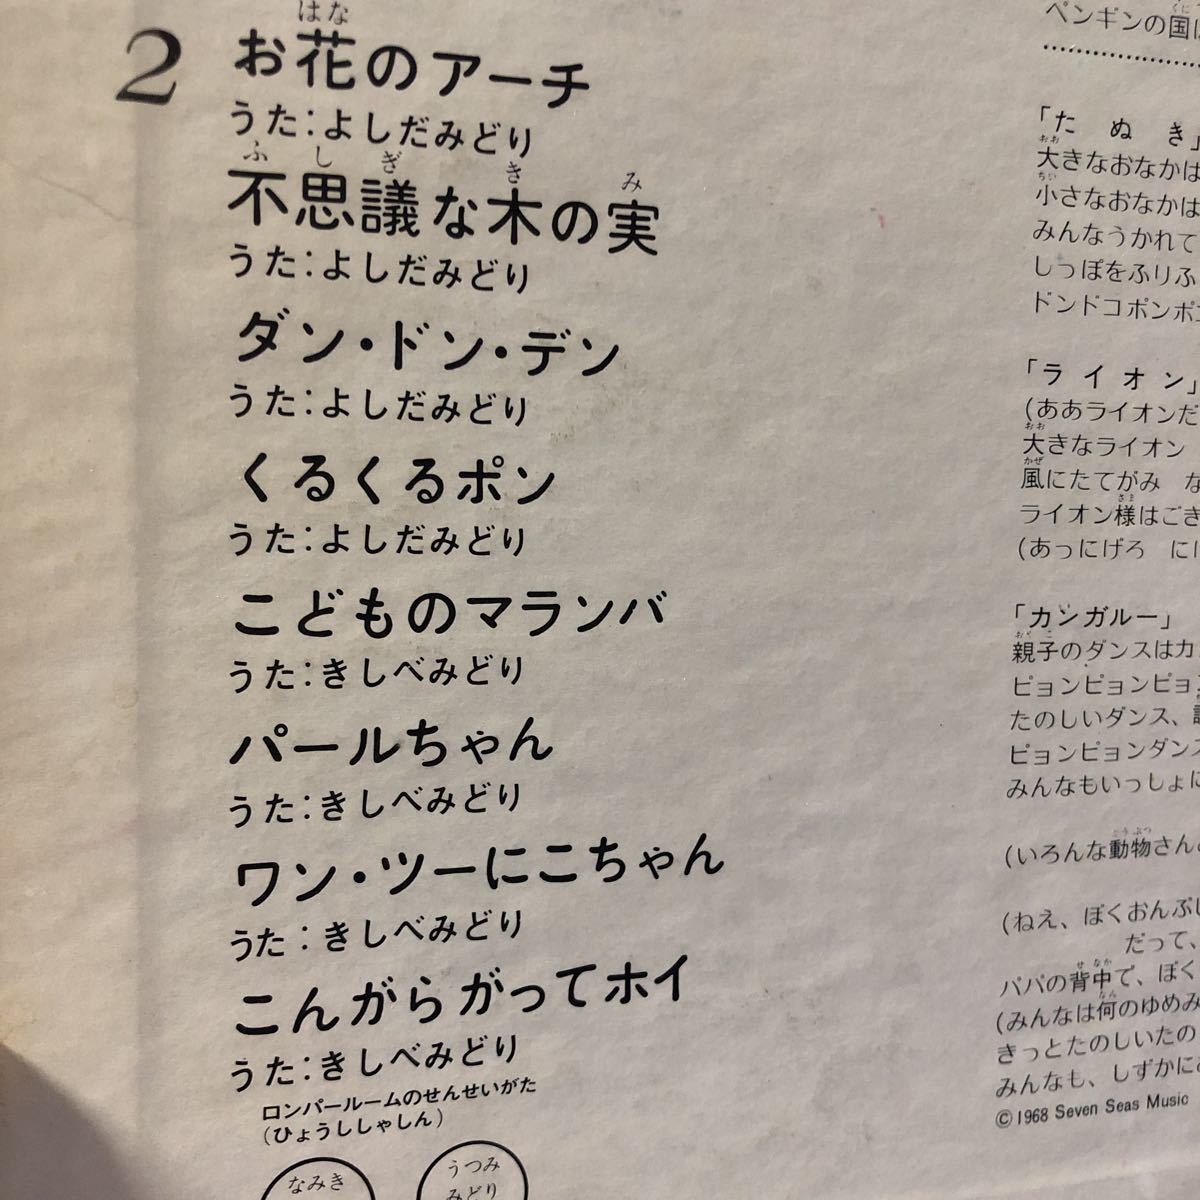 2
はな
お花のアーチ
うた：よしだみどり
ふしぎ き み
不思議な木の実
うた：よしだみどり
ダン・ドン・デン
うた：よしだみどり
くるくるポン
うた：よしだみどり
こどものマランバ
うた：きしべみどり
パールちゃん
うた：きしべみどり
ワン・ツーにこちゃん
うた：きしべみどり
こんがらがってホイ
うた：きしべみどり
ロンパールームのせんせいがた
(ひょうししゃしん)
なみき
うつみ
みどり
くに
ペンギンの国
「たぬき」
おお
大きなおなかは
ちい
小さなおなかは
みんなうかれて
しっぽをふりふ
ドンドコポンポコ
「ライオン」
(ああライオンだ
おお
大きなライオン
かぜ
風にたてがみ な
さま
ライオン様はごき
(あっにげろ にに
「カンガルー」
おやこ
親子のダンスはカ
ピョンピョンピョン
たのしいダンス、
ピョンピョンダンス
みんなもいっしょに
どうぶつ
(いろんな動物さん
(ねえ、ぼくおんぶ
だって、
せなか
パパの背中で、ぼく
なん
(みんなは何のゆめみ
きっとたのしいたの
みんなも、しずかに
©1968 Seven Seas Music